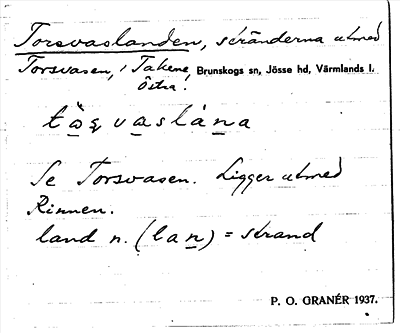 Torsvaslanden, stränderna utmed
Torsvasen, i Takene, Brunskogs sn, Jösse hd, Värmlands l.
Östra.
vaslána
Se Torsvasen. Ligger utmed
Rinnen.
land n. (lan) = strand
P. O. GRANÉR 1937.